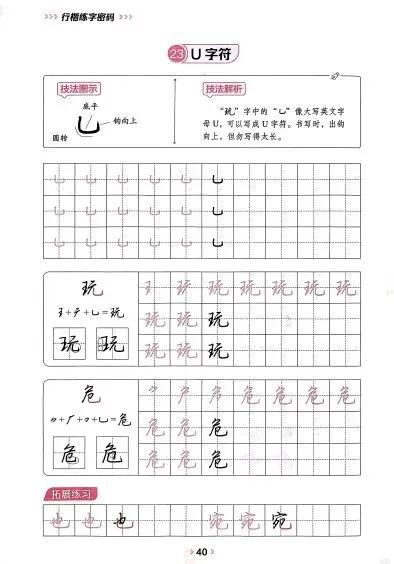 >>> 行楷练字密码 >>>
23 U 字符
技法图示
底平
钩向上
圆转
乚
技法解析
“玩”字中的“乚”像大写英文字
母U，可以写成U字符。书写时，出钩
向上，但勿写得太长。
乚 乚 乚 乚 乚 乚 乚
乚 乚 乚 乚 乚 乚 乚
乚 乚 乚 乚 乚 乚 乚
玩
玩 玩
玩 玩 玩 玩 玩 玩
玩 玩 玩
玩 玩 玩
危
危 危
危 危 危 危
危 危 危
危 危 危
拓展练习
也 也 也 宛 宛 宛
> 40 >